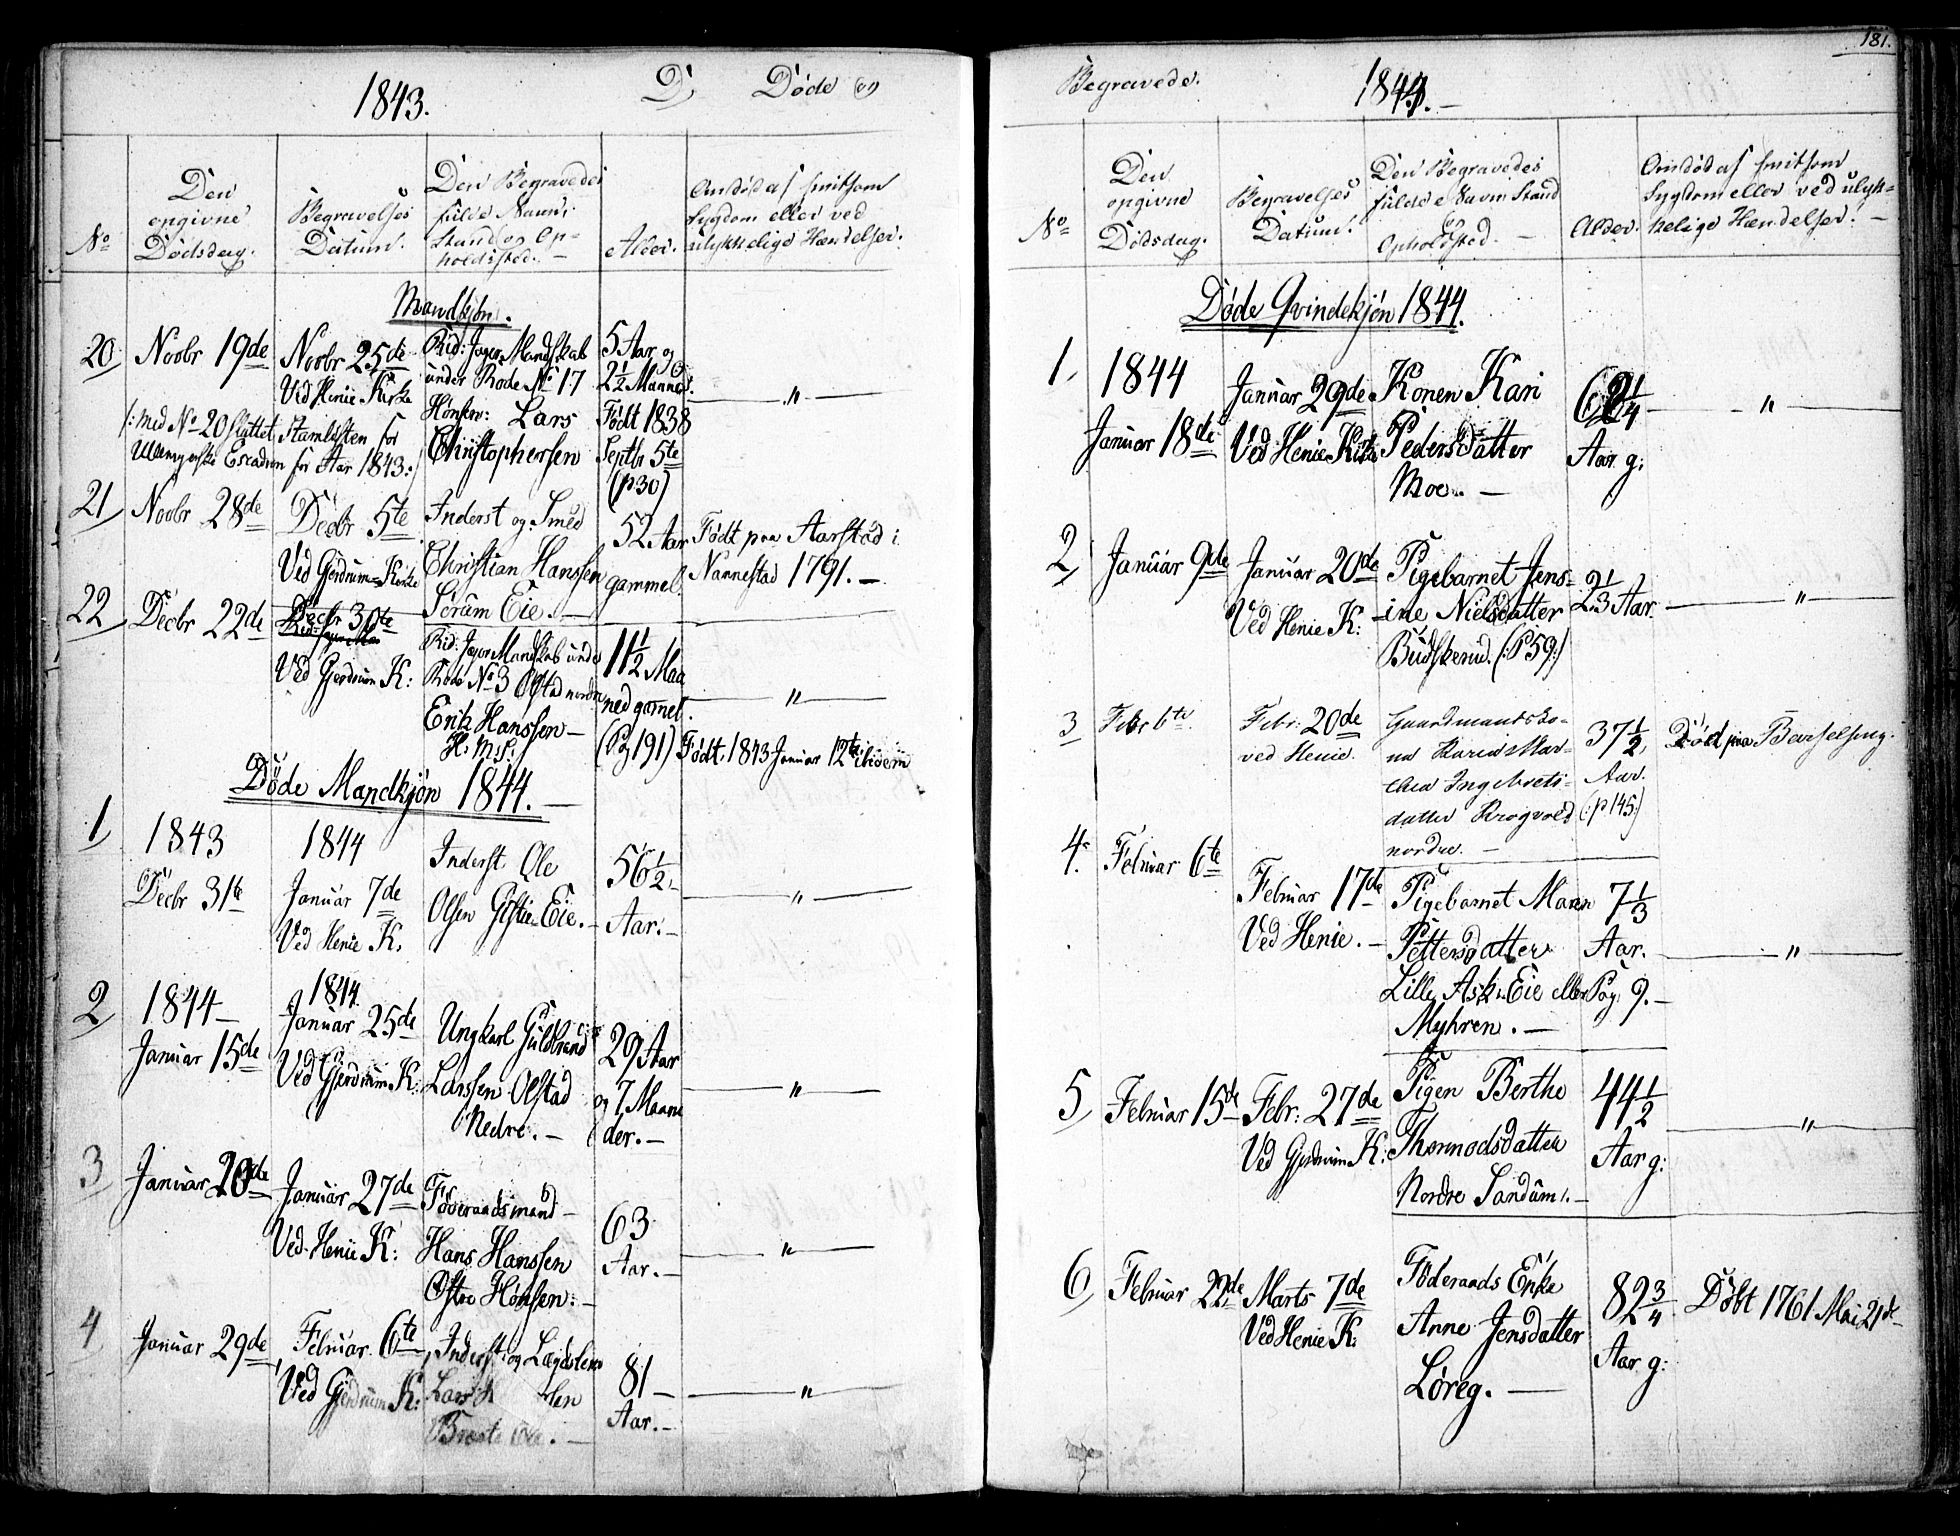 1843.
D, Døde og
No
Den
opgivne
Dødsdag.
Begravelses
Datum.
Den Begravedes
fulde Navn,
Stand og Op-
holdssted. —
Alder.
Om død af smitsom
Sygdom eller ved
ulykkelige Hændelser.
Mandkjøn.
20,
Novbr 19de
Novbr 25de
Ved Henie Kirke
Rid: Jager Mandskab
under Rode No 17
Hønsen: Lars
Christophersen
5 Aar og
2 1/2 Maaned.
Født 1838
Septbr 5te
(p30)
"
/: med No 20 slettet Stamlisten for
Escadron for Aar 1843 :/
21,
Novbr 28de
Decbr 5te
Ved Gjerdrum Kirke
Inderst og Smed
Christian Hanssen
Sørum Eie. —
52 Aar
gammel.
Født paa Aarstad i
Nannestad 1791. —
22,
Decbr 22de
Decbr 30te
Ved Gjerdrum K:
Rid: Jager Mandskab under
Rode No 3 Olstad nordre
Erik Hanssen —
11 1/2 Maa
ned gamel.
(Pag 191)
"
Født 1843 Januar 12te ibidem
Døde Mandkjøn 1844. —
1,
1843
Decbr 31te
1844
Januar 7de
Ved Henie K.
Inderst Ole
Olsen Gistie Eie. —
56 1/2
Aar. —
"
2,
1844 —
Januar 15de
1844.
Januar 25de
Ved Gjerdrum K:
Ungkarl Guldbrand
Larssen Olstad
Nedre. —
29 Aar
og 7 Maane
der. —
"
3,
Januar 20de
Januar 27de
Ved Henie K:
Føderaadsmand —
Hans Hanssen
Østre Hønsen: —
63
Aar. —
"
4,
Januar 29de
Februar 6te
Ved Gjerdrum K:
Inderst og Lægdslem
Lars
81 —
Aar. —
"
181.
Begravede.
1844. —
No
Den
opgivne
Dødsdag.
Begravelses
Datum.
Den Begravedes
fulde Navn Stand
og
Opholdssted. —
Alder.
Om død af smitsom
Sygdom eller ved ulyk-
kelige Hændelser. —
Døde Qvindekjøn 1844.
1,
1844
Januar 18de
Januar 29de
Ved Henie Kirke
Konen Kari
Pedersdatter
Moe. —
Aar g:
"
2,
Januar 9de
Januar 20de
Ved Henie K:
Pigebarnet Jens-
ine Nielsdatter
Budskerud. (:P59:)
2 1/3 Aar.
"
3
Febr 6te
Febr: 20de
ved Henie.
Gaardmandsko-
na Karen Mar-
thea Ingebrets-
datter Krogvold
nordre. —
37 1/2,
Aar.
(:p145:)
Død paa Barselseng.
4.
Februar 6te
Februar 17de
Ved Henie. —
Pigebarnet Maren
Pettersdatter
Lille Ask Eie eller
Myhren. —
7 1/3
Aar.
Pag: 9. —
"
5,
Februar 15de
Febr: 27de
Ved Gjerdrum K:
Pigen Berthe
Thormodsdatter
Nordre Sandum. —
44 1/2
Aar g:
"
6,
Februar 22de
Marts 7de
Ved Henie K:
Føderaads Enke
Anne Jensdatter
Løreg. —
82 3/4
Aar g:
Døbt 1761 Mai 21de